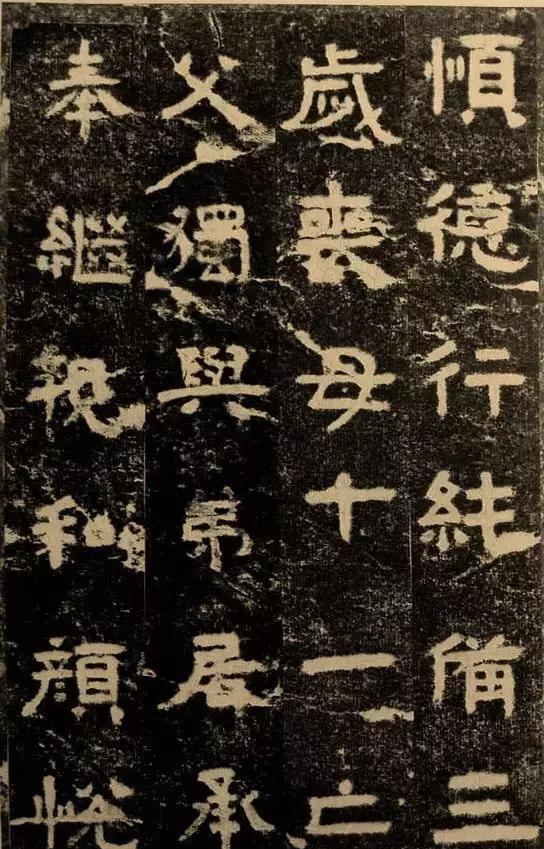 順德行純備三
歲喪母十一亡
父獨與弟居承
奉繼親和顏悅